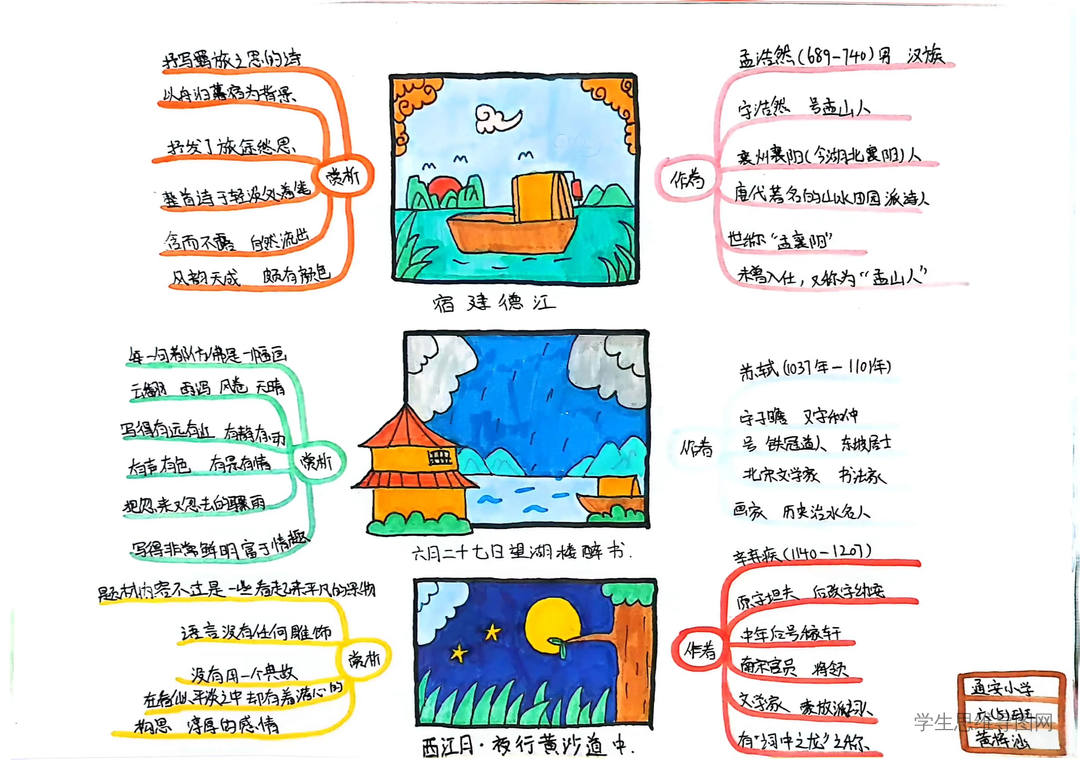 抒写羁旅之思的诗
以舟泊暮宿为背景
抒发了旅途愁思
整首诗于轻淡处落笔
含而不露 自然流出
风韵天成 颇有颜色
赏析
宿建德江
作者
孟浩然(689-740)男 汉族
字浩然 号孟山人
襄州襄阳(今湖北襄阳)人
唐代著名的山水田园派诗人
世称“孟襄阳”
未曾入仕,又称为“孟山人”
每一句都仿佛是一幅画
云翻 雨泻 风卷 天晴
写得有远有近 有静有动
有声有色 有景有情
把忽来又忽去的骤雨
写得非常鲜明富于情趣
赏析
六月二十七日望湖楼醉书.
作者
苏轼(1037年-1101年)
字子瞻 又字和仲
号 铁冠道人 东坡居士
北宋文学家 书法家
画家 历史治水名人
题材内容不过是一些看起来平凡的景物
语言没有任何雕饰
没有用一个典故
在看似平淡之中却有着潜心的
构思 淳厚的感情
赏析
西江月·夜行黄沙道中.
作者
辛弃疾(1140-1207)
原字坦夫 后改字幼安
中年后号稼轩
南宋官员 将领
文学家 豪放派词人
有“词中之龙”之称
通安小学
学生思维导图网